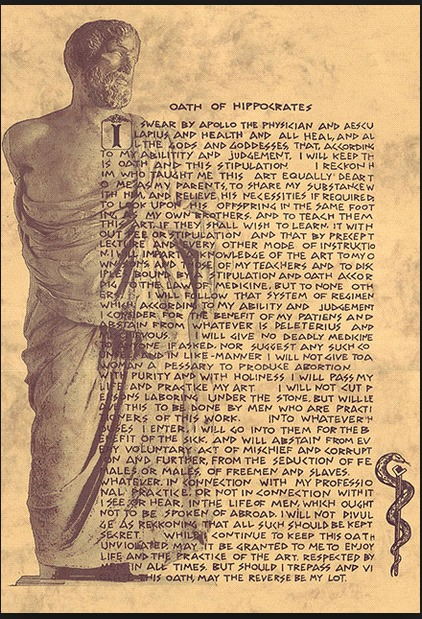 OATH OF HIPPOCRATES
I SWEAR BY APOLLO THE PHYSICIAN AND AESCU
LAPIUS AND HEALTH AND ALL HEAL, AND AL
L THE GODS AND GODDESSES, THAT, ACCORDING
TO MY ABILITITY AND JUDGEMENT, I WILL KEEP TH
IS OATH AND THIS STIPULATION I RECKON H
IM WHO TAUGHT ME THIS ART EQUALLY DEAR T
O ME AS MY PARENTS, TO SHARE MY SUBSTANCE W
ITH HIM, AND RELIEVE HIS NECESSITIES IF REQUIRED
TO LOOK UPON HIS OFFSPRING IN THE SAME FOOT
ING AS MY OWN BROTHERS. AND TO TEACH THEM
THIS ART. IF THEY SHALL WISH TO LEARN IT WITH
OUT FEE OR STIPULATION AND THAT BY PRECEPT
LECTURE AND EVERY OTHER MODE OF INSTRUCTIO
N I WILL IMPART KNOWLEDGE OF THE ART TO MY O
WN SONS AND THOSE OF MY TEACHERS AND TO DISC
IPLES BOUND BY A STIPULATION AND OATH ACCOR
DING TO THE LAW OF MEDICINE, BUT TO NONE OTH
ERS I WILL FOLLOW THAT SYSTEM OF REGIMEN
WHICH, ACCORDING TO MY ABILITY AND JUDGEMENT
I CONSIDER FOR THE BENEFIT OF MY PATIENS AND
ABSTAIN FROM WHATEVER IS PELETERIUS AND
I WILL GIVE NO DEADLY MEDICINE
TO ANYONE IF ASKED NOR SUGGEST ANY SUCH CO
UNSEL AND IN LIKE-MANNER I WILL NOT GIVE TO A
WOMAN A PESSARY TO PRODUCE ABORTION
WITH PURITY AND WITH HOLINESS I WILL PASS MY
LIFE AND PRACTICE MY ART I WILL NOT CUT P
ERSONS LABORING UNDER THE STONE. BUT WILL LE
AVE THIS TO BE DONE BY MEN WHO ARE PRACTI
TIONERS OF THIS WORK. INTO WHATEVER H
OUSES I ENTER I WILL GO INTO THEM FOR THE B
ENEFIT OF THE SICK. AND WILL ABSTAIN FROM EV
ERY VOLUNTARY ACT OF MISCHIEF AND CORRUPT
ION AND FURTHER, FROM THE SEDUCTION OF FE
MALES OR MALES, OF FREEMEN AND SLAVES.
WHATEVER, IN CONNECTION WITH MY PROFESSIO
NAL PRACTICE, OR NOT IN CONNECTION WITH IT
I SEE OR HEAR, IN THE LIFE OF MEN, WHICH OUGHT
NOT TO BE SPOKEN OF ABROAD. I WILL NOT DIVUL
GE AS RECKONING THAT ALL SUCH SHOULD BE KEPT
SECRET WHILE I CONTINUE TO KEEP THIS OATH
UNVIOLATED, MAY IT BE GRANTED TO ME TO ENJOY
LIFE AND THE PRACTICE OF THE ART. RESPECTED BY
MEN IN ALL TIMES. BUT SHOULD I TREPASS AND VI
THIS OATH, MAY THE REVERSE BE MY LOT.